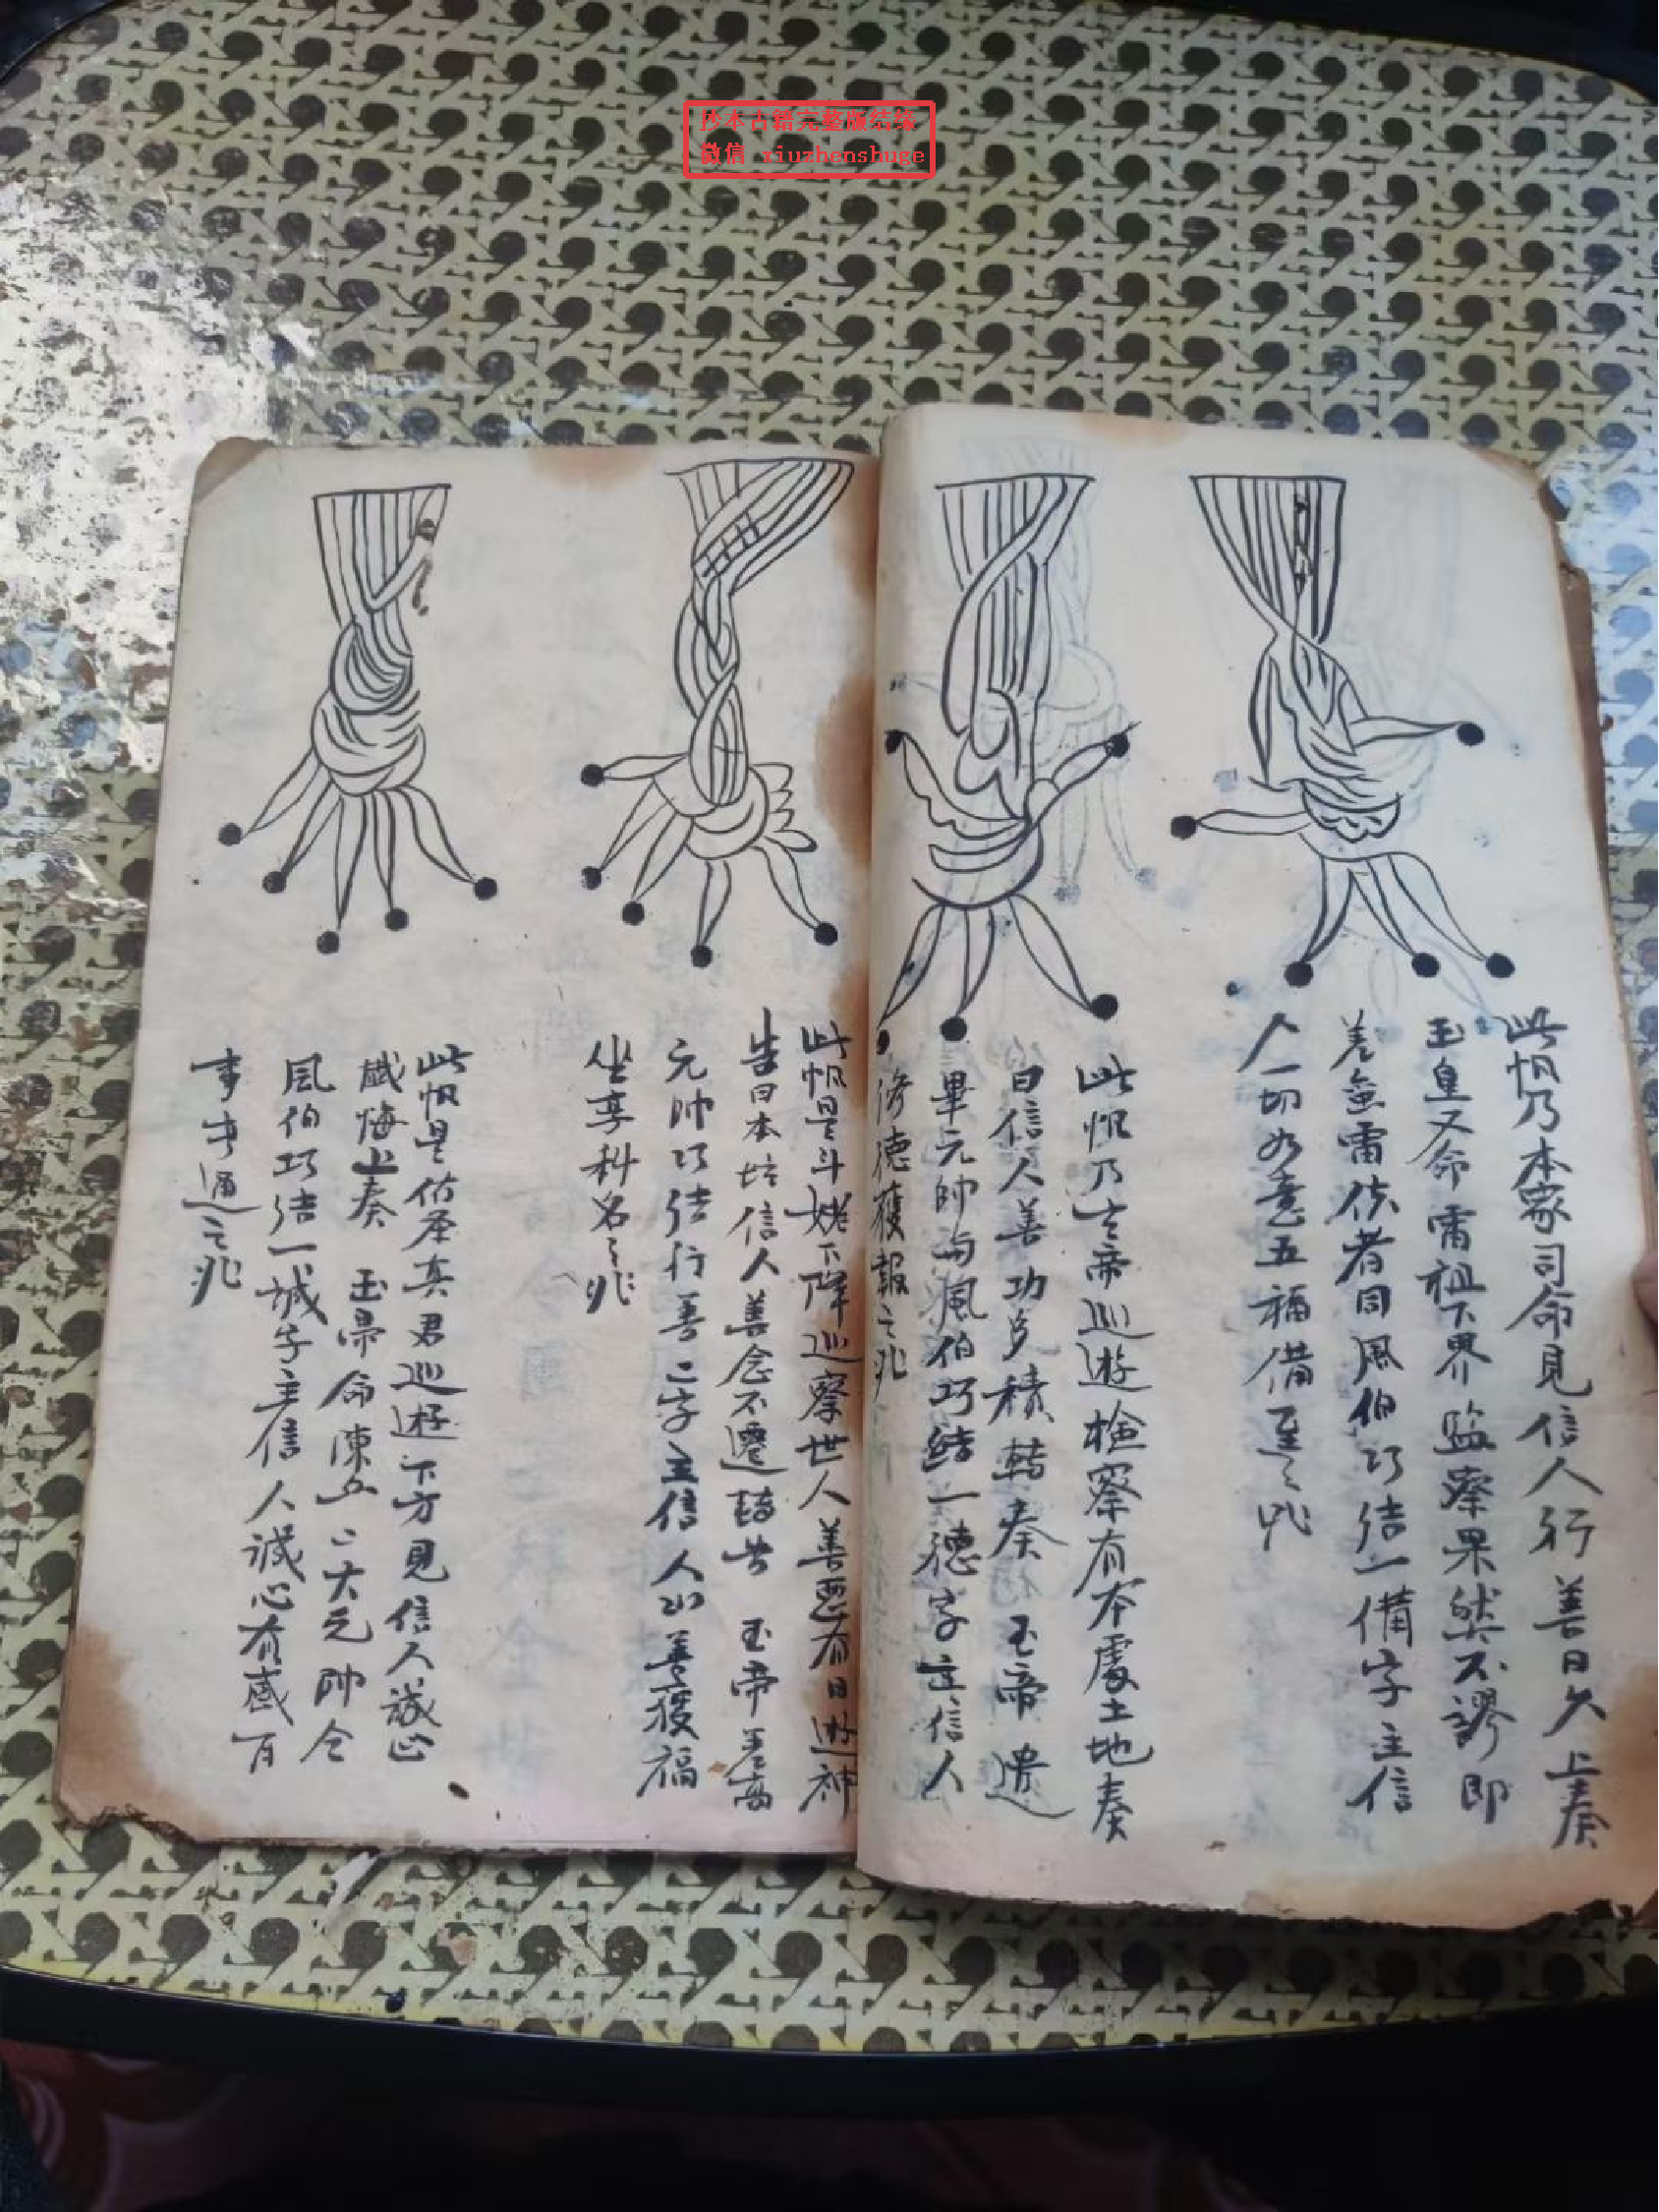 抄本古籍完整版结缘
微信 xiuzhenshuge
此幡乃本家司命見信人行善日久上奏
玉皇又命雷祖下界監察果然不謬即
差雷使者同風伯巧结一備字主信
人一切如意五福備至之兆
此幡乃玄帝巡遊檢察有本處土地奏
曰信人善功光積轉奏 玉帝遣
畢元帥與風伯巧結一德字主信人
修德獲報之兆
此幡是斗姥下降巡察世人善惡有日遊神
告曰本坊信人善念不遷轉告 玉帝差
元帥巧结行善二字主信人以善獲福
坐享科名之兆
此幡是佑聖真君巡遊下方見信人誠心
懺悔上奏 玉帝命陳 二大元帥仝
風伯巧结一誠字主信人誠心有感百
事亨通之兆